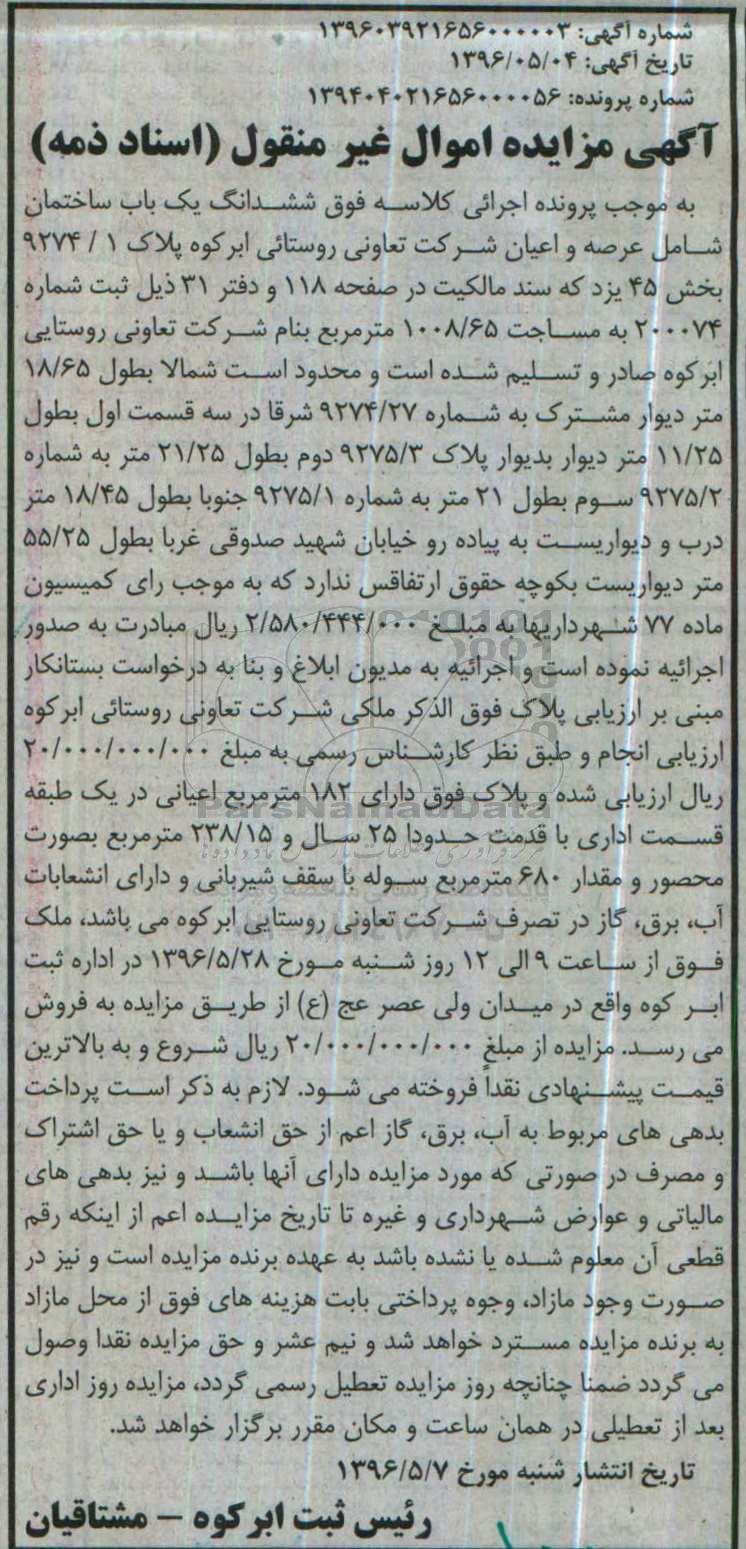 شماره آگهی: ۱۳۹۶۰۳۹۲۱۶۵۶۰۰۰۰۰۳
تاریخ آگهی: ۱۳۹۶/۰۵/۰۴
شماره پرونده: ۱۳۹۴۰۴۰۲۱۶۵۶۰۰۰۰۵۶
آگهی مزایده اموال غیر منقول (اسناد ذمه)
به موجب پرونده اجرائی کلاسه فوق ششدانگ یک باب ساختمان
شامل عرصه و اعیان شرکت تعاونی روستائی ابرکوه پلاک ۱ / ۹۲۷۴
بخش ۴۵ یزد که سند مالکیت در صفحه ۱۱۸ و دفتر ۳۱ ذیل ثبت شماره
۲۰۰۰۷۴ به مساحت ۱۰۰۸/۶۵ مترمربع بنام شرکت تعاونی روستایی
ابرکوه صادر و تسلیم شده است و محدود است شمالا بطول ۱۸/۶۵
متر دیوار مشترک به شماره ۹۲۷۴/۲۷ شرقا در سه قسمت اول بطول
۱۱/۲۵ متر دیوار بدیوار پلاک ۹۲۷۵/۳ دوم بطول ۲۱/۲۵ متر به شماره
۹۲۷۵/۲ سوم بطول ۲۱ متر به شماره ۹۲۷۵/۱ جنوبا بطول ۱۸/۴۵ متر
درب و دیواریست به پیاده رو خیابان شهید صدوقی غربا بطول ۵۵/۲۵
متر دیواریست بکوچه حقوق ارتفاقس ندارد که به موجب رای کمیسیون
ماده ۷۷ شهرداریها به مبلغ ۲/۵۸۰/۴۴۴/۰۰۰ ریال مبادرت به صدور
اجرائیه نموده است و اجرائیه به مدیون ابلاغ و بنا به درخواست بستانکار
مبنی بر ارزیابی پلاک فوق الذکر ملکی شرکت تعاونی روستائی ابرکوه
ارزیابی انجام و طبق نظر کارشناس رسمی به مبلغ ۲۰/۰۰۰/۰۰۰/۰۰۰
ریال ارزیابی شده و پلاک فوق دارای ۱۸۲ مترمربع اعیانی در یک طبقه
ParsNamadData
قسمت اداری با قدمت حدودا ۲۵ سال و ۲۳۸/۱۵ مترمربع بصورت
محصور و مقدار ۶۸۰ مترمربع سوله با سقف شیربانی و دارای انشعابات
آب، برق، گاز در تصرف شرکت تعاونی روستایی ابرکوه می باشد، ملک
فوق از ساعت ۹ الی ۱۲ روز شنبه مورخ ۱۳۹۶/۵/۲۸ در اداره ثبت
ابر کوه واقع در میدان ولی عصر عج (ع) از طریق مزایده به فروش
می رسد. مزایده از مبلغ ۲۰/۰۰۰/۰۰۰/۰۰۰ ریال شروع و به بالاترین
قیمت پیشنهادی نقداً فروخته می شود. لازم به ذکر است پرداخت
بدهی های مربوط به آب، برق، گاز اعم از حق انشعاب و یا حق اشتراک
و مصرف در صورتی که مورد مزایده دارای آنها باشد و نیز بدهی های
مالیاتی و عوارض شهرداری و غیره تا تاریخ مزایده اعم از اینکه رقم
قطعی آن معلوم شده یا نشده باشد به عهده برنده مزایده است و نیز در
صورت وجود مازاد، وجوه پرداختی بابت هزینه های فوق از محل مازاد
به برنده مزایده مسترد خواهد شد و نیم عشر و حق مزایده نقدا وصول
می گردد ضمنا چنانچه روز مزایده تعطیل رسمی گردد، مزایده روز اداری
بعد از تعطیلی در همان ساعت و مکان مقرر برگزار خواهد شد.
تاریخ انتشار شنبه مورخ ۱۳۹۶/۵/۷
رئیس ثبت ابرکوه – مشتاقیان